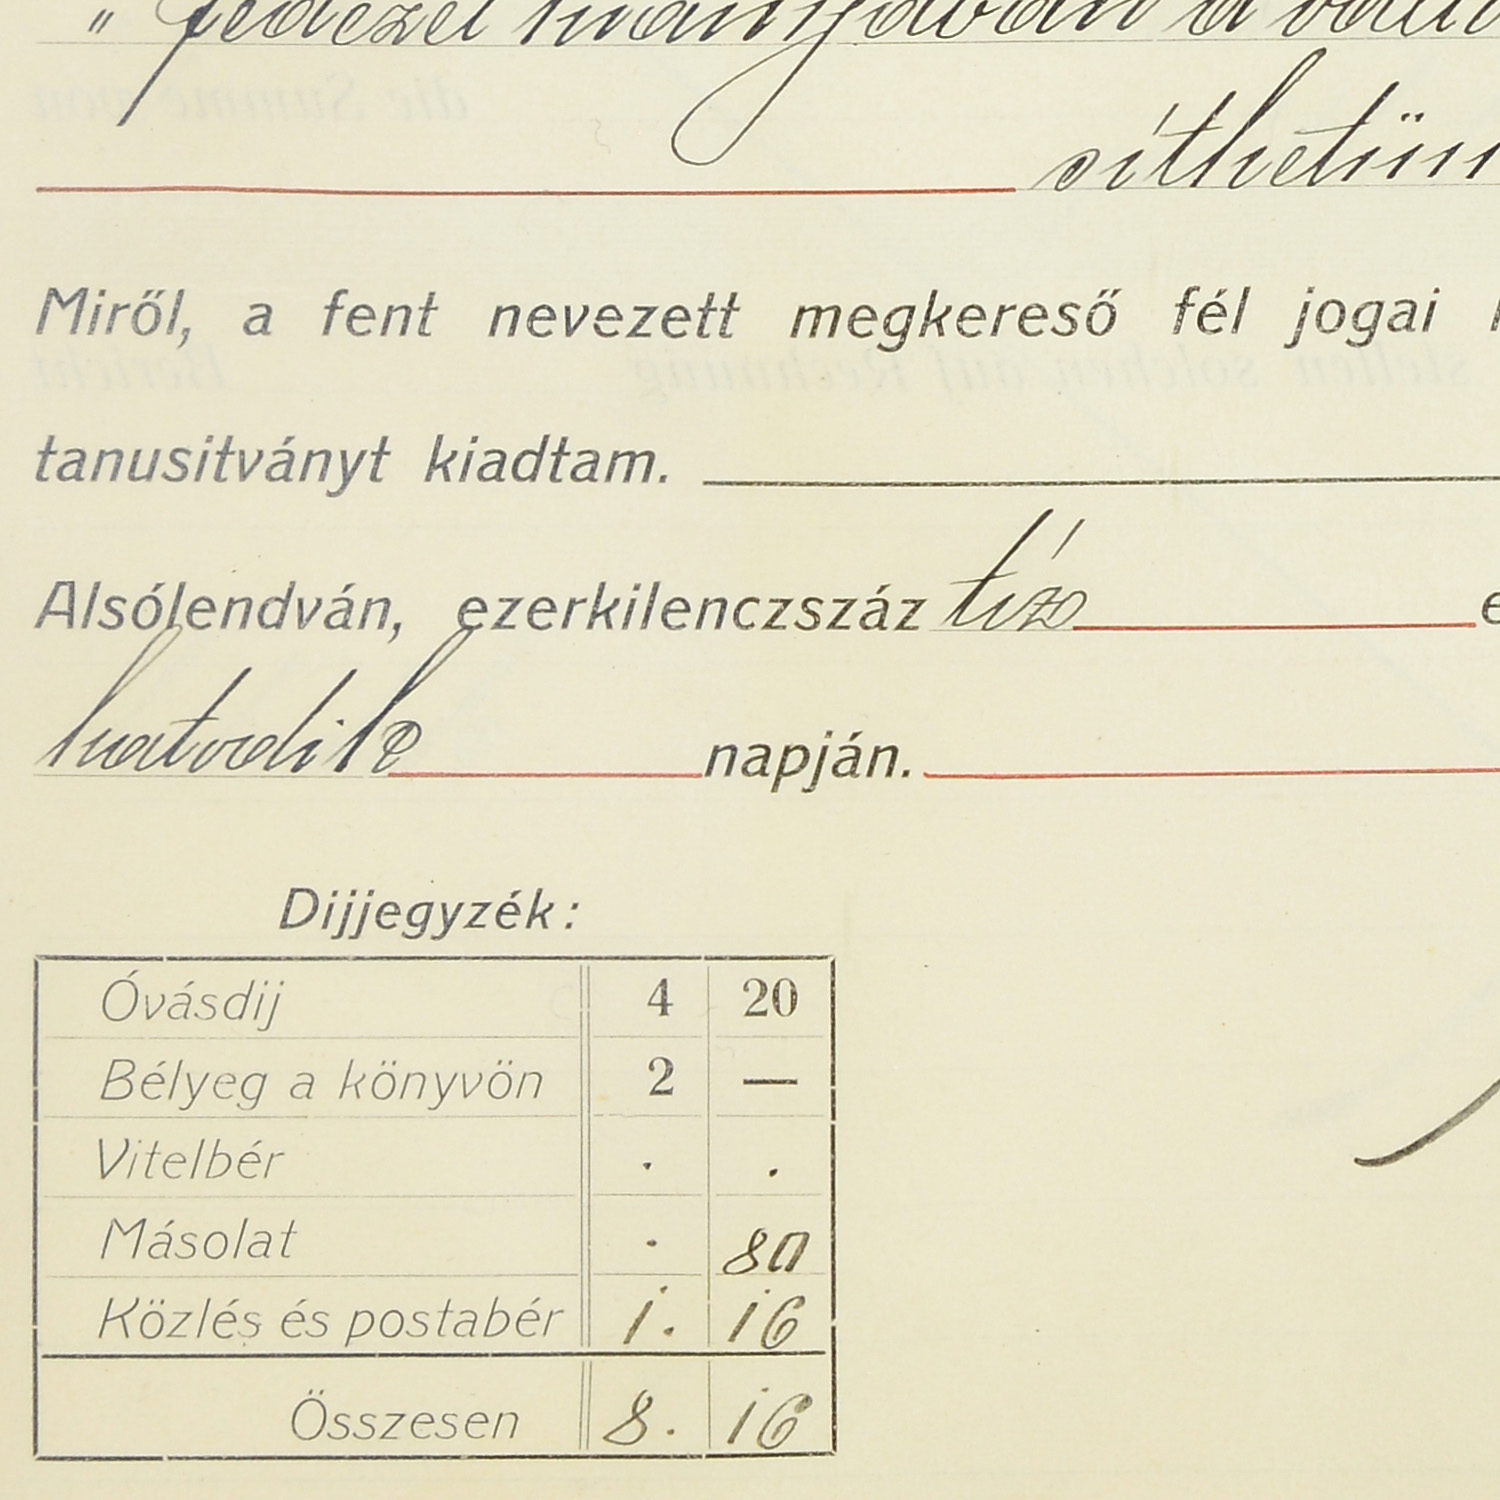 " fedezet hiányában a váltó
síthetjün
Miről, a fent nevezett megkereső fél jogai
tanusitványt kiadtam.
Alsólendván, ezerkilenczszáz tíz e
hatodik napján.
Dijjegyzék:
Óvásdij 4 20
Bélyeg a könyvön 2 —
Vitelbér . .
Másolat . 80
Közlés és postabér 1. 16
Összesen 8. 16